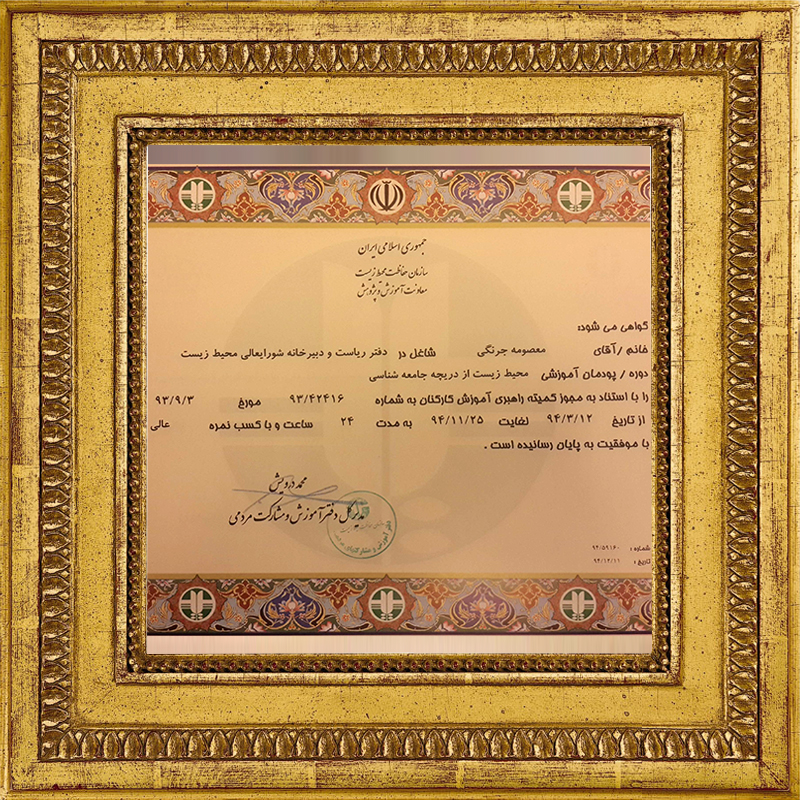 جمهوری اسلامی ایران
سازمان حفاظت محیط زیست
معاونت آموزش و پژوهش
گواهی می شود:
خانم /آقای معصومه جرنگی شاغل در دفتر ریاست و دبیرخانه شورایعالی محیط زیست
دوره / پودمان آموزشی محیط زیست از دریچه جامعه شناسی
را با استناد به مجوز کمیته راهبری آموزش کارکنان به شماره ۹۳/۴۲۴۱۶ مورخ ۹۳/۹/۳
از تاریخ ۹۴/۳/۱۲ لغایت ۹۴/۱۱/۲۵ به مدت ۲۴ ساعت و با کسب نمره عالی
با موفقیت به پایان رسانیده است .
محمد درویش
مدیر کل دفتر آموزش و مشارکت مردمی
شماره : ۹۴/۵۹۱۶۰
تاریخ : ۹۴/۱۲/۱۱